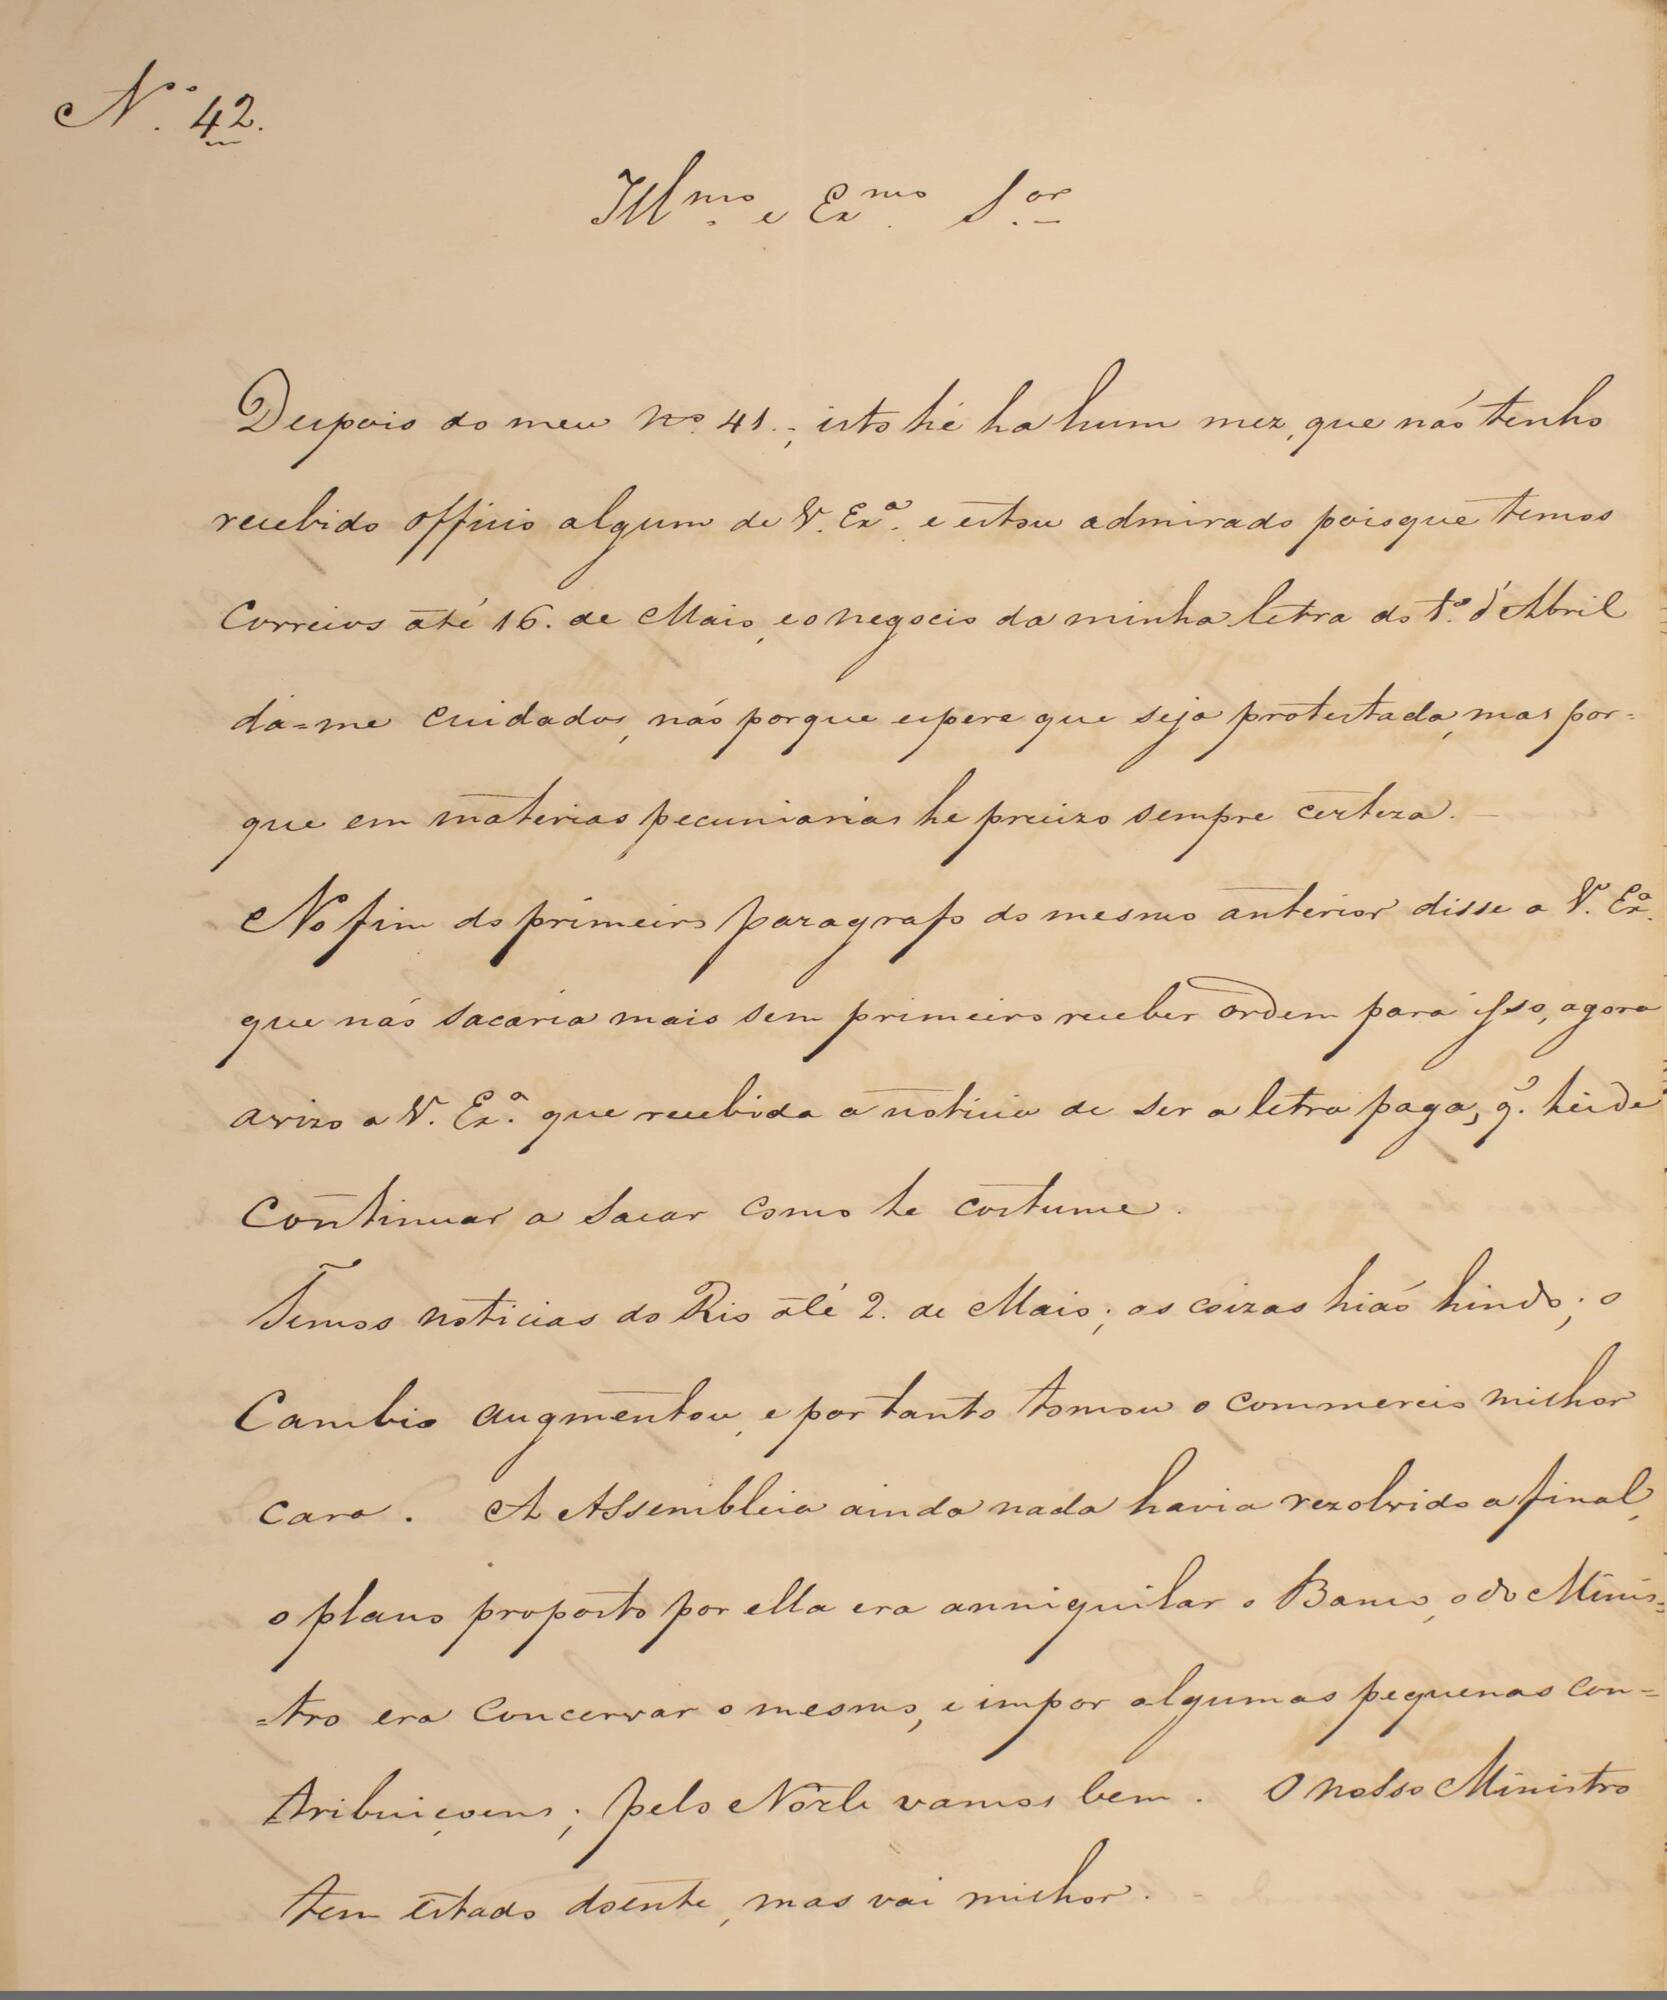 N.º 42.
Illmo. e Exmo. Sor.
Depois do meu No. 41., isto hé ha hum mez, que náo tenho
recebido officio algum de V. Exª. e estou admirado pois que temos
Correios até 16. de Maio, e o negocio da minha letra do 1º. d'Abril
dá=me cuidados, náo porque espere que seja protestada, mas por=
que em materias pecuniarias he precizo sempre certeza. —
No fim do primeiro paragrafo do mesmo anterior disse a V. Exª.
que náo sacaria mais sem primeiro receber ordem para isso, agora
avizo a V. Exª. que recebida a noticia de ser a letra paga, q.' hei de
Continuar a sacar como he costume.
Temos noticias do Rio até 2. de Maio; as coizas hiáo hindo; o
Cambio augmentou, e por tanto tomou o commercio milhor
cara. A Assembleia ainda nada havia rezolvido a final,
o plano proposto por ella era anniquilar o Banco, o do Minis=
=tro era Concervar o mesmo, e impor algumas pequenas Con=
tribuiçoens; pelo Norte vamos bem. O nosso Ministro
tem estado doente, mas vai milhor.